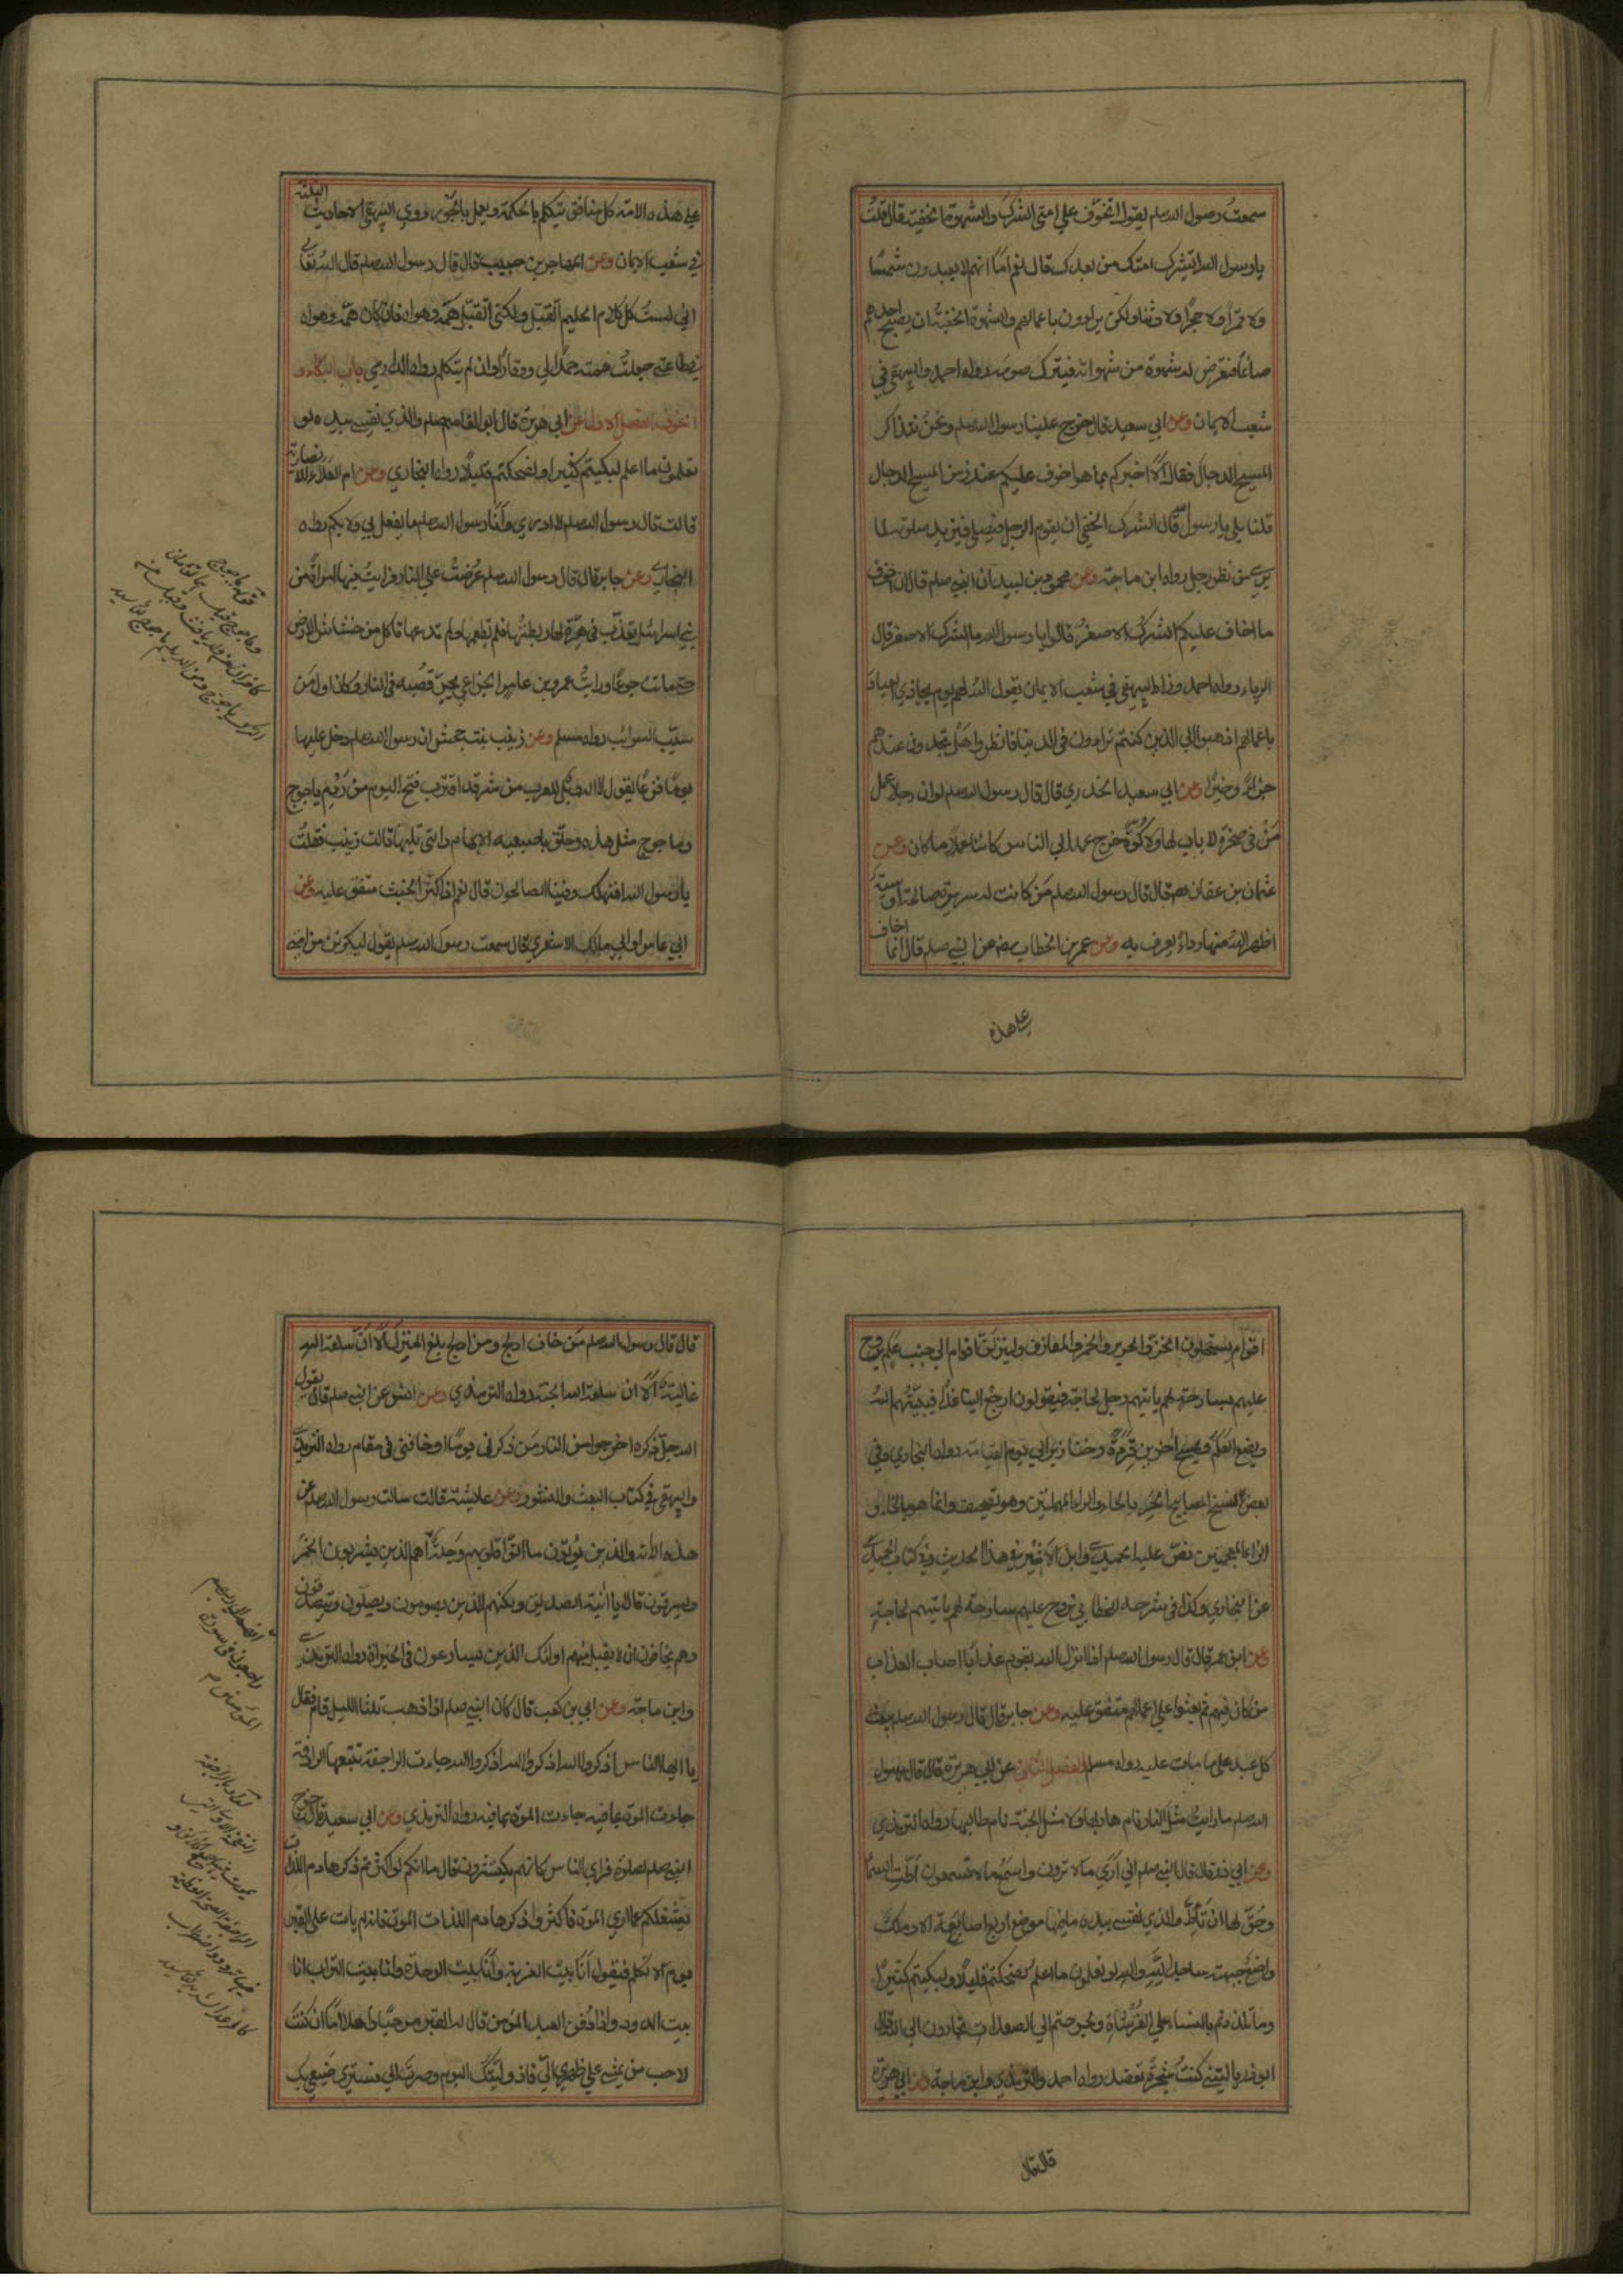 سمعت رسول الله صلعم يقول اتخوف علي امتي الشرك والشهوة الخفية قال قلت
يا رسول الله اتشرك امتك من بعدك قال نعم اما انهم لا يعبدون شمسا
ولا قمرا ولا حجرا ولا وثنا ولكن يراؤن باعمالهم والشهوة الخفية ان يصبح احدهم
صائما فتعرض له شهوة من شهواته فيترك صومه رواه احمد والبيهقي في
شعب الايمان وعن ابي سعيد قال خرج علينا رسول الله صلعم ونحن نتذاكر
المسيح الدجال فقال الا اخبركم بما هو اخوف عليكم عندي من المسيح الدجال
قلنا بلي يا رسول الله قال الشرك الخفي ان يقوم الرجل فيصلي فيزيد صلوته لما
يري من نظر رجل رواه ابن ماجة وعن محمود بن لبيد ان النبي صلعم قال ان اخوف
ما اخاف عليكم الشرك الاصغر قالوا يا رسول الله وما الشرك الاصغر قال
الرياء رواه احمد وزاد البيهقي في شعب الايمان يقول الله لهم يوم يجازي العباد
باعمالهم اذهبوا الي الذين كنتم تراؤن في الدنيا فانظروا هل تجدون عندهم
جزاء وخيرا وعن ابي سعيد الخدري قال قال رسول الله صلعم لو ان رجلا عمل عملا
في صخرة لا باب لها ولا كوة خرج عمله الي الناس كائنا ما كان وعن
عثمان بن عفان رضه قال قال رسول الله صلعم من كانت له سريرة صالحة او سيئة
اظهر الله منها رداء يعرف به وعن عمر بن الخطاب رضه عن النبي صلعم قال انما اخاف
علي هذه
علي هذه الامة كل منافق يتكلم بالحكمة ويعمل بالجور روي البيهقي الاحاديث الثلثة
في شعب الايمان وعن المهاجر بن حبيب قال قال رسول الله صلعم قال الله تعالي
اني لست كل كلام الحكيم اتقبل ولكني اتقبل همه وهواه فان كان همه وهواه
في طاعتي جعلت صمته حمدا لي ووقارا وان لم يتكلم رواه الدارمي باب البكاء و
الخوف الفصل الاول عن ابي هريرة قال قال ابو القاسم صلعم والذي نفسي بيده لو
تعلمون ما اعلم لبكيتم كثيرا ولضحكتم قليلا رواه البخاري وعن ام العلاء الانصارية
قالت قال رسول الله صلعم لا ادري وانا رسول الله صلعم ما يفعل بي ولا بكم رواه
البخاري وعن جابر قال قال رسول الله صلعم عرضت علي النار فرايت فيها امراة من
بني اسرائيل تعذب في هرة لها ربطتها فلم تطعمها ولم تدعها تاكل من خشاش الارض
حتي ماتت جوعا ورايت عمرو بن عامر الخزاعي يجر قصبه في النار وكان اول من
سيب السوائب رواه مسلم وعن زينب بنت جحش ان رسول الله صلعم دخل عليها
يوما فزعا يقول لا اله الا الله ويل للعرب من شر قد اقترب فتح اليوم من ردم ياجوج
وماجوج مثل هذه وحلق باصبعيه الابهام والتي تليها قالت زينب فقلت
يا رسول الله افنهلك وفينا الصالحون قال نعم اذا كثر الخبث متفق عليه وعن
ابي عامر او ابي مالك الاشعري قال سمعت رسول الله صلعم يقول ليكونن من امتي
اقوام يستحلون الخز والحرير والخمر والمعازف ولينزلن اقوام الي جنب علم يروح
عليهم بسارحة لهم ياتيهم رجل لحاجة فيقولون ارجع الينا غدا فيبيتهم الله
ويضع العلم ويمسخ اخرين قردة وخنازير الي يوم القيامة رواه البخاري وفي
بعض نسخ المصابيح الحر بالحاء والراء المهملتين وهو تصحيف وانما هو بالخاء و
الزاء المعجمتين نص عليه الحميدي وابن الاثير في هذا الحديث وفي كتاب الحميدي
عن البخاري وكذا في شرحه للخطابي تروح عليهم سارحة لهم ياتيهم لحاجة
وعن ابن عمر قال قال رسول الله صلعم اذا انزل الله بقوم عذابا اصاب العذاب
من كان فيهم ثم بعثوا علي اعمالهم متفق عليه وعن جابر قال قال رسول الله صلعم يبعث
كل عبد علي ما مات عليه رواه مسلم الفصل الثاني عن ابي هريرة قال قال رسول
الله صلعم ما رايت مثل النار نام هاربها ولا مثل الجنة نام طالبها رواه الترمذي
وعن ابي ذر قال قال النبي صلعم اني اري ما لا ترون واسمع ما لا تسمعون اطت السماء
وحق لها ان تاط والذي نفسي بيده ما فيها موضع اربع اصابع الا وملك
واضع جبهته ساجدا لله والله لو تعلمون ما اعلم لضحكتم قليلا ولبكيتم كثيرا
وما تلذذتم بالنساء علي الفرشات ولخرجتم الي الصعدات تجارون الي الله قال
ابو ذر يا ليتني كنت شجرة تعضد رواه احمد والترمذي وابن ماجة وعن ابي هريرة
قال قال
قال قال رسول الله صلعم من خاف ادلج ومن ادلج بلغ المنزل الا ان سلعة الله
غالية الا ان سلعة الله الجنة رواه الترمذي وعن انس عن النبي صلعم قال يقول
الله جل ذكره اخرجوا من النار من ذكرني يوما او خافني في مقام رواه الترمذي
والبيهقي في كتاب البعث والنشور وعن عايشة قالت سالت رسول الله صلعم عن
هذه الاية والذين يؤتون ما اتوا وقلوبهم وجلة اهم الذين يشربون الخمر
ويسرقون قال لا يا ابنة الصديق ولكنهم الذين يصومون ويصلون ويتصدقون
وهم يخافون ان لا يقبل منهم اولئك الذين يسارعون في الخيرات رواه الترمذي
وابن ماجة وعن ابي بن كعب قال كان النبي صلعم اذا ذهب ثلثا الليل قام فقال
يا ايها الناس اذكروا الله اذكروا الله اذكروا الله جاءت الراجفة تتبعها الرادفة
جاءت الموت بما فيه جاءت الموت بما فيه رواه الترمذي وعن ابي سعيد قال خرج
النبي صلعم لصلوة فراي الناس كانهم يكتشرون قال اما انكم لو اكثرتم ذكر هادم اللذات
لشغلكم عما اري الموت فاكثروا ذكر هادم اللذات الموت فانه لم يات علي القبر
يوم الا تكلم فيقول انا بيت الغربة وانا بيت الوحدة وانا بيت التراب انا
بيت الدود واذا دفن العبد المؤمن قال له القبر مرحبا واهلا اما ان كنت
لاحب من يمشي علي ظهري الي فاذ وليتك اليوم وصرت الي فستري صنيعي بك